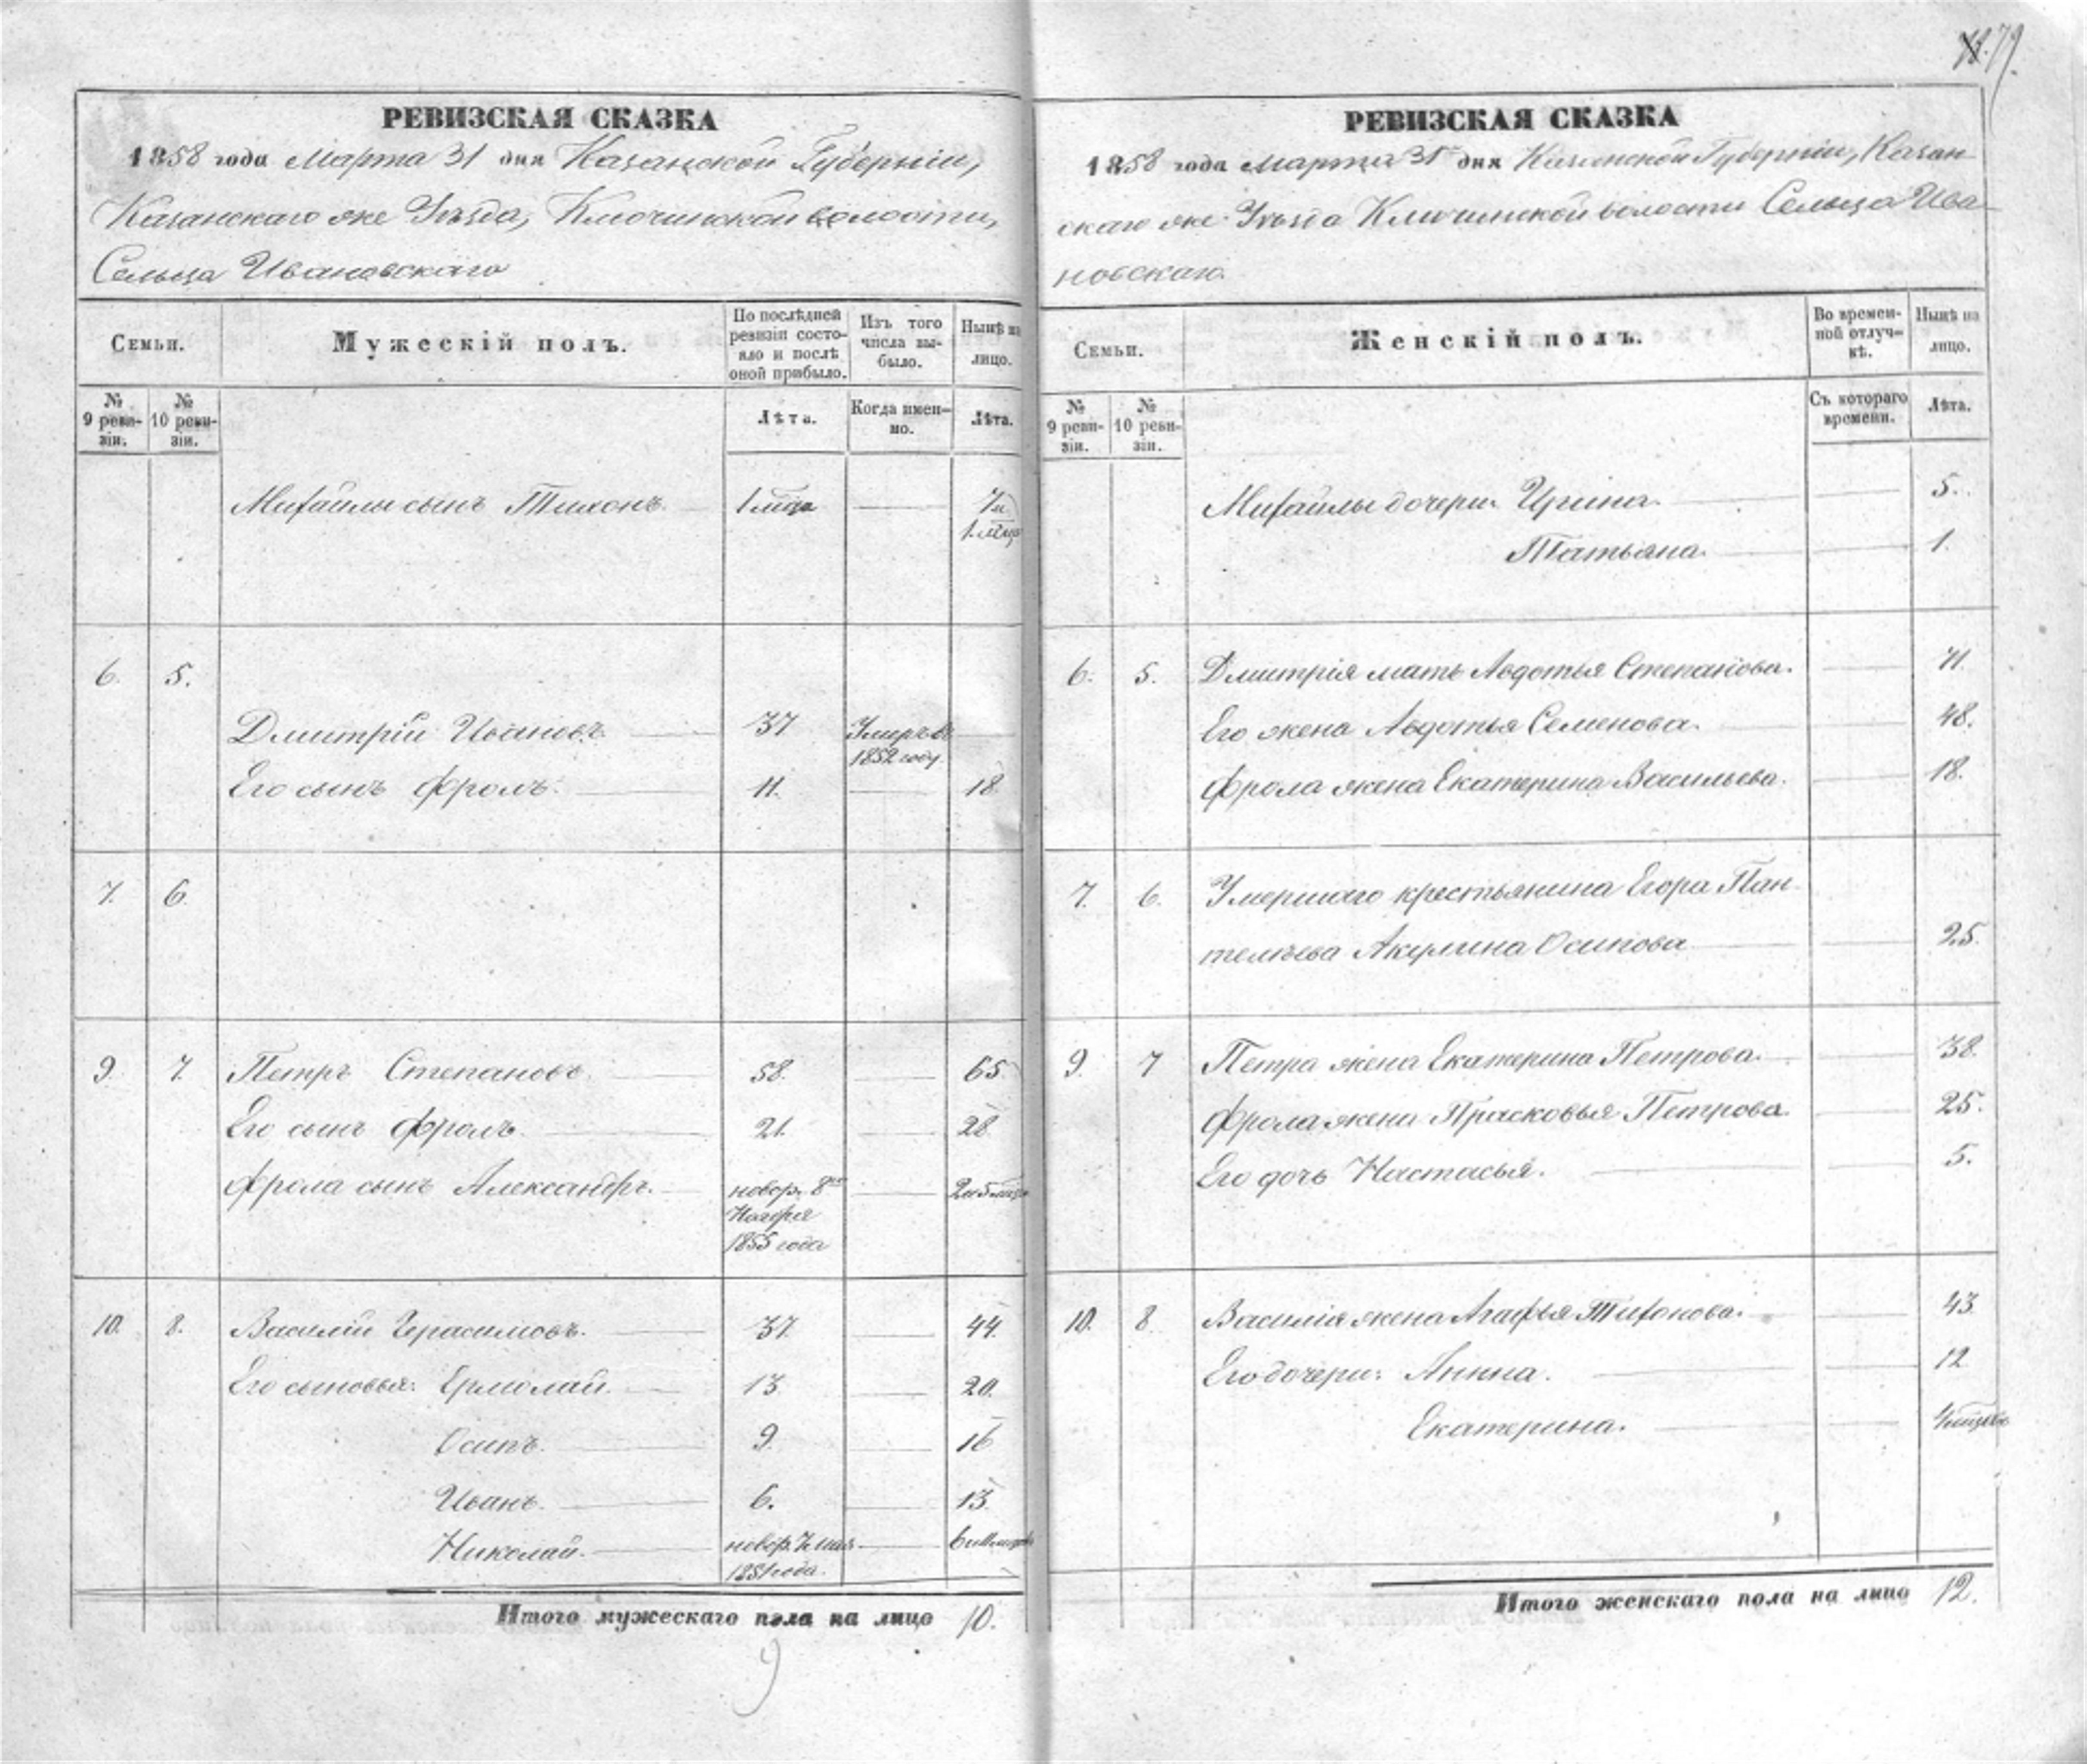 79.
РЕВИЗСКАЯ СКАЗКА
1858 года Марта 31 дня Казанской Губерніи,
Казанскаго же Уѣзда, Ключинской волости,
Сельца Ивановскаго
Семьи.
Мужескій полъ.
По послѣдней ревизіи состояло и послѣ оной прибыло.
Изъ того числа выбыло.
Нынѣ на лицо.
№ 9 ревизіи.
№ 10 ревизіи.
Лѣта.
Когда именно.
Лѣта.
Михайлы сынъ Тихонъ 1 мѣца
6. 5.
Дмитрій Ивановъ 37 Умеръ в 1852 году
Его сынъ Фролъ. 11. 18
7. 6.
9. 7. Петръ Степановъ 58. 65
Его сынъ Фролъ 21. 28
Фрола сынъ Александръ. новор. 8го Ноября 1855 года
10. 8. Василій Герасимовъ. 37 44.
Его сыновья: Ермолай 13 20.
Осипъ. 9. 16
Иванъ. 6. 13.
Николай. новор. 1851 года.
Итого мужескаго пола на лицо 10.
РЕВИЗСКАЯ СКАЗКА
1858 года марта 31 дня Казанской Губерніи, Казан-
скаго же Уѣзда Ключинской волости Сельца Ива-
новскаго.
Семьи.
Женскій полъ.
Во временной отлучкѣ.
Нынѣ на лицо.
№ 9 ревизіи.
№ 10 ревизіи.
Съ котораго времени.
Лѣта.
Михайлы дочери: Ирина 5.
Татьяна. 1.
6. 5. Дмитрія мать Авдотья Степанова. 71.
Его жена Авдотья Семенова. 48.
Фрола жена Екатерина Васильева. 18.
7. 6. Умершаго крестьянина Егора Пан-
телѣева Акулина Осипова 25.
9. 7 Петра жена Екатерина Петрова. 38.
Фрола жена Прасковья Петрова 25.
Его дочь Настасья. 5.
10. 8 Василія жена Агафья Тихонова. 43
Его дочери: Анна. 12
Екатерина.
Итого женскаго пола на лицо 12.